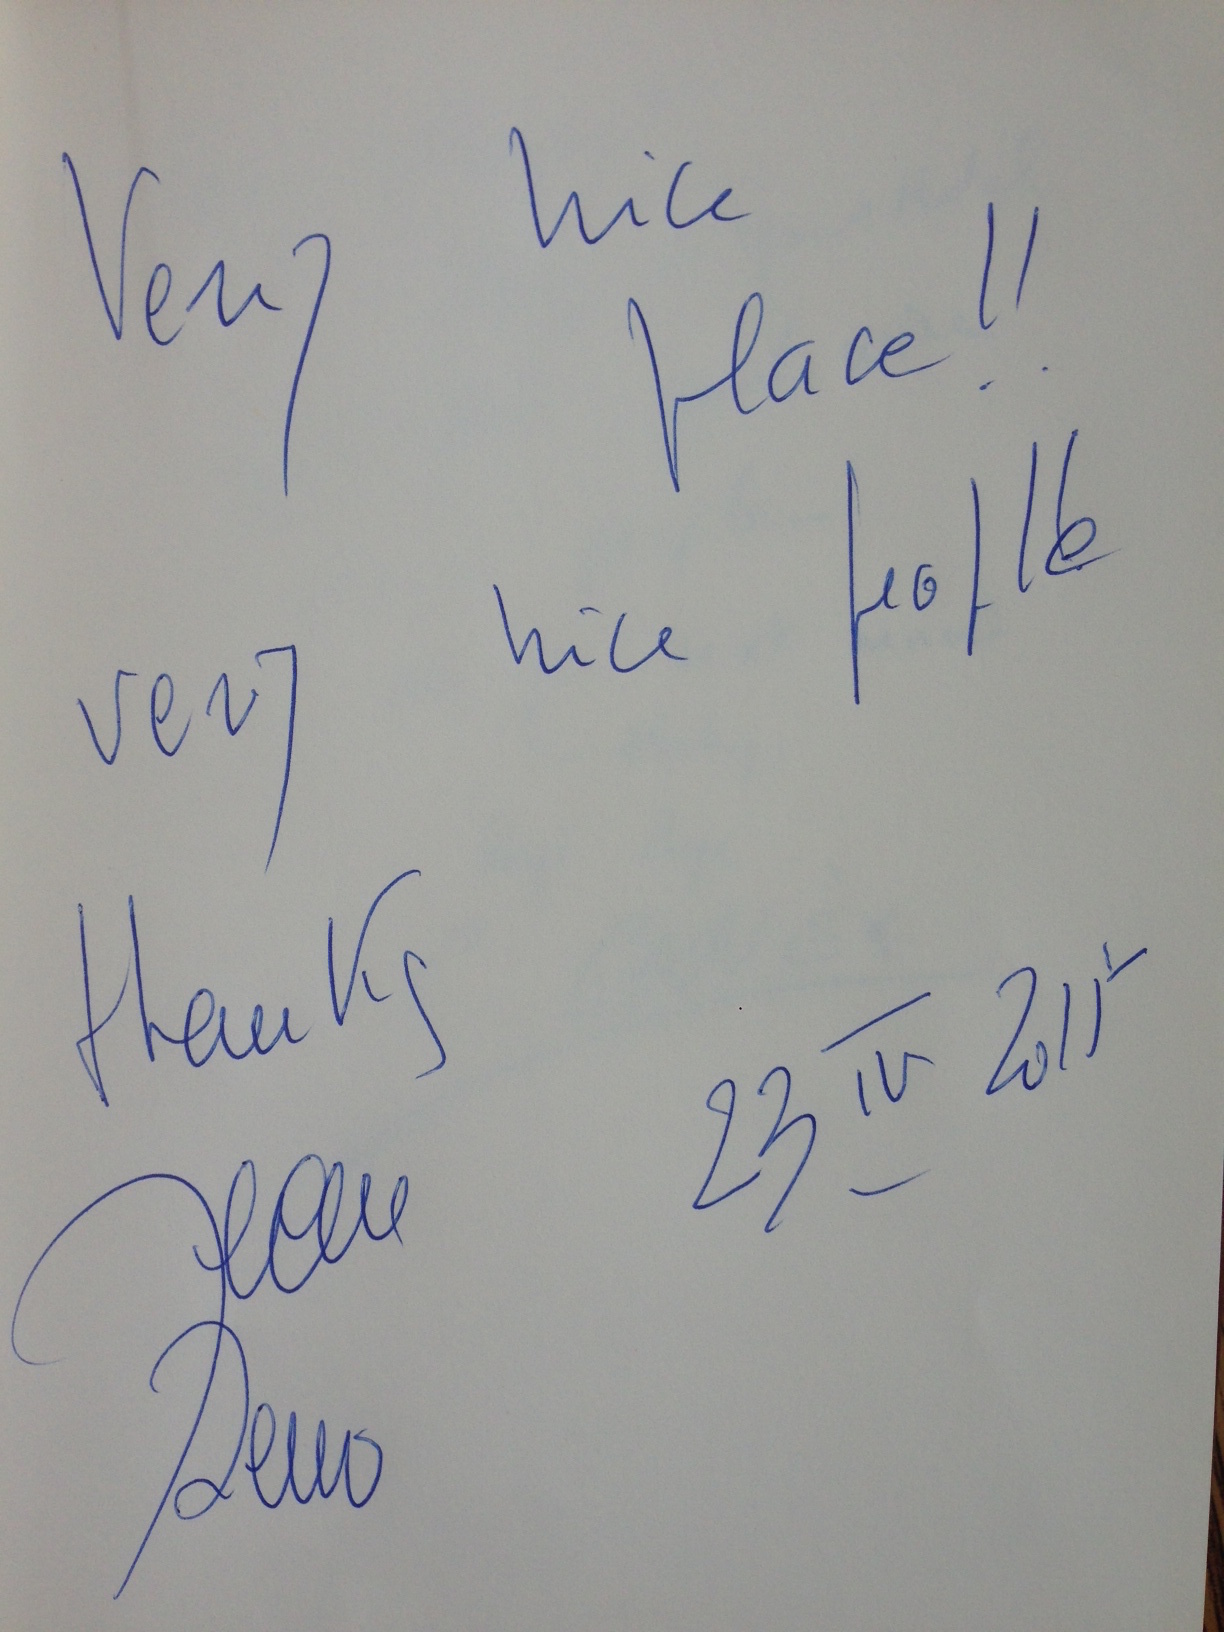 Very nice
place!!
very nice people
thanks
23 IV 2015
Jean
Reno